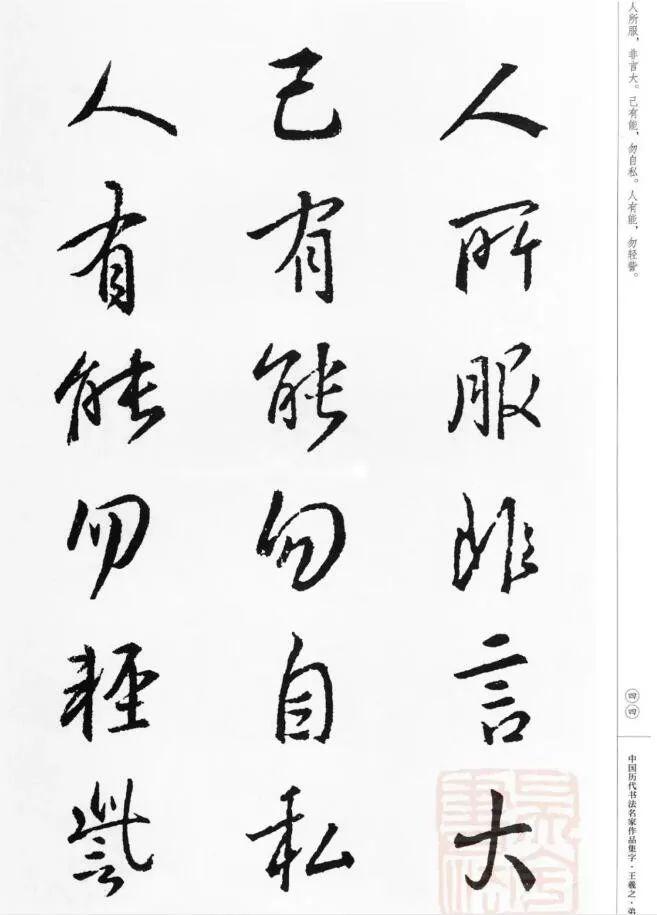 人所服，非言大。己有能，勿自私。人有能，勿轻訾。
人所服非言大
己有有能勿自私
人有能勿輕訾
四四
中国历代书法名家作品集字·王羲之·弟